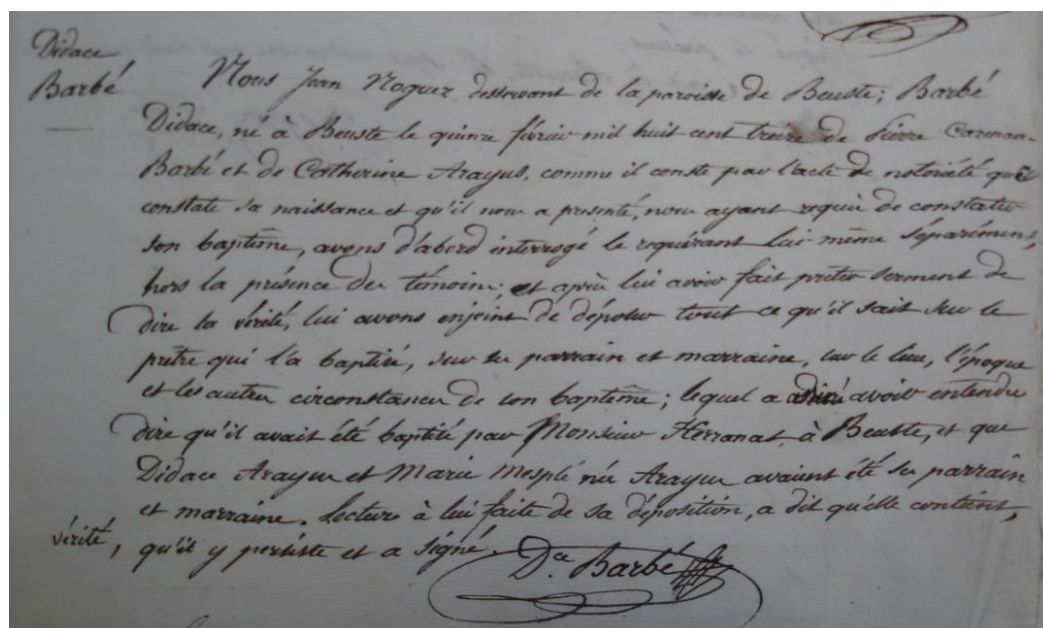 Didace
Barbé
Nous Jean Noguez desservant de la paroisse de Beuste; Barbé
Didace, né à Beuste le quinze février mil huit cent treize de Pierre
Barbé et de Catherine Arayus, comme il conste par l'acte de notoriété qui
constate sa naissance et qu'il nous a présenté, nous ayant requis de constater
son baptême, avons d'abord interrogé le requérant lui-même séparément,
hors la présence des témoins; et après lui avoir fait prêter serment de
dire la vérité, lui avons enjoint de déposer tout ce qu'il sait sur le
prêtre qui l'a baptisé, sur ses parrain et marraine, sur le lieu, l'époque
et les autres circonstances de son baptême; lequel a avoir entendu
dire qu'il avait été baptisé par Monsieur Herranat à Beuste, et que
Didace Arayus et Marie Mesplé née Arayus avaient été ses parrain
et marraine. Lecture à lui faite de sa déposition, a dit qu'elle contient,
vérité, qu'il y persiste et a signé.
Da. Barbé